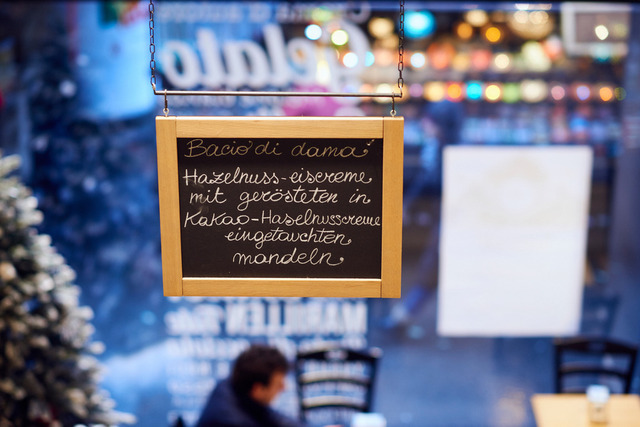 Gelato
Bacio di dama
Hazelnuss-eiscreme
mit gerösteten in
Kakao-Haselnusscreme
eingetauchten
mandeln.
MARILLEN